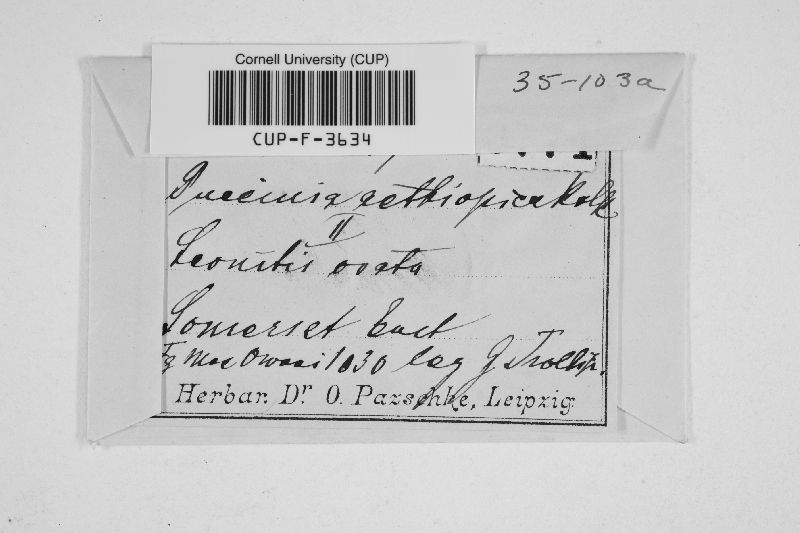 Cornell University (CUP)
CUP-F-3634
35-103a
Puccinia aethiopica Kalk
II
Leonotis ovata
Somerset East
Fg Mac Owani 1030 leg J Trollip.
Herbar. Dr. O. Pazschke, Leipzig